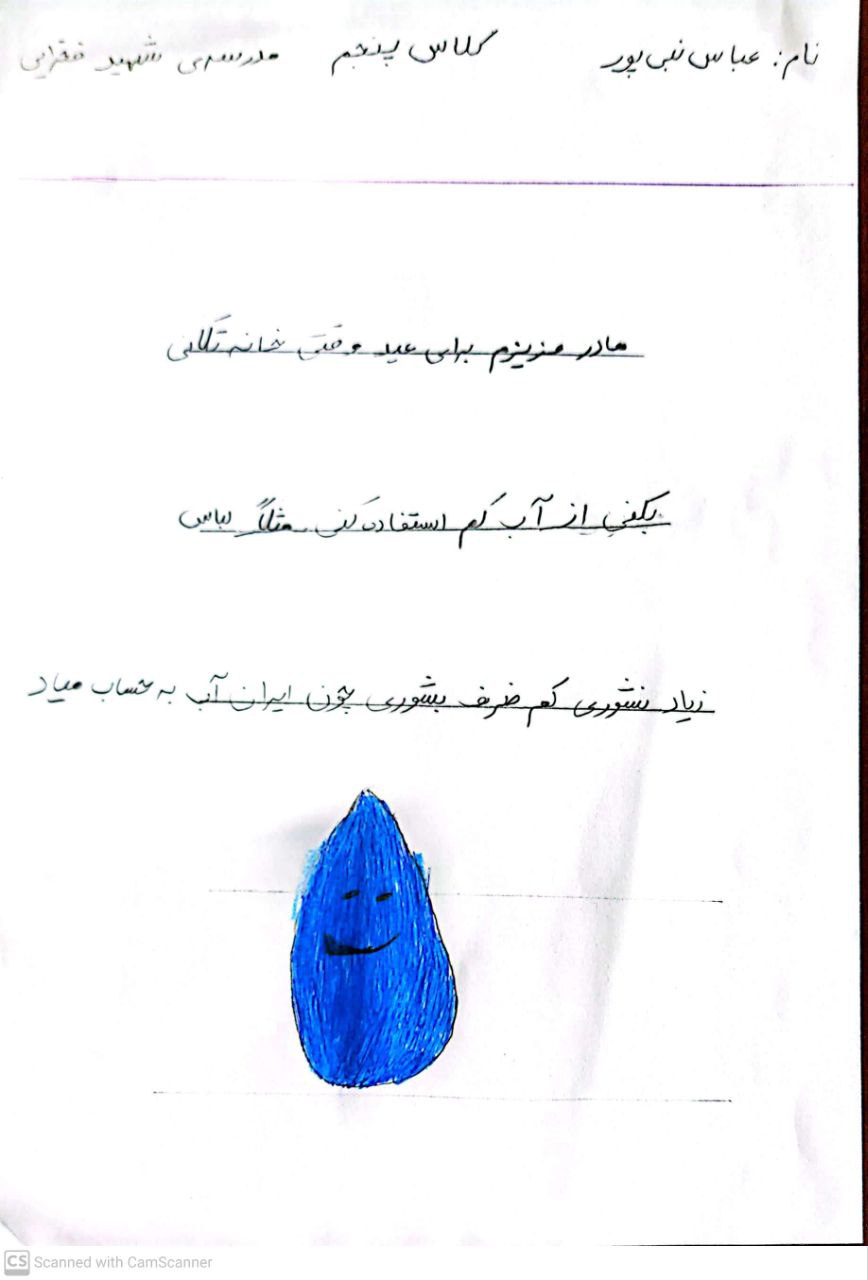 نام: عباس نبی پور کلاس پنجم مدرسه‌ی شهید فقرایی
مادر عزیزم برای عید وقتی خانه تکانی
بکنی از آب کم استفاده کنی. مثلاً لباس
زیاد نشوری کم ظرف بشوری چون ایران آب به حساب میاد
CS Scanned with CamScanner